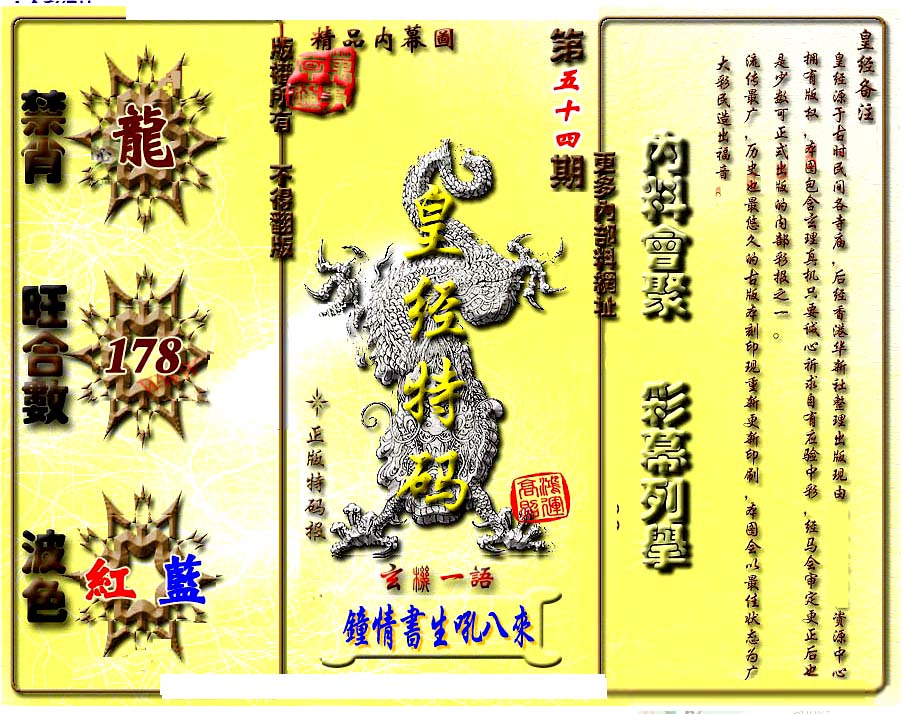 皇经备注
皇经源于古时民间各寺庙，后经香港华新社整理出版现由
资源中心
拥有版权，本图包含玄理真机只要诚心祈求自有应验中彩，经马会审定更正后也
是少数可正式出版的内部彩报之一。
流传最广，历史也最悠久的古版本刻印现重新更新印刷，本图会以最佳状态为广
大彩民造出福音。
內料會聚
彩幕列舉
更多內部料網址
第五十四期
精品内幕圖
版權所有 不得翻版
皇经特码
正版特码报
鴻運高照
玄機一語
鐘情書生吼八來
禁肖
龍
旺合數
178
波色
紅 藍